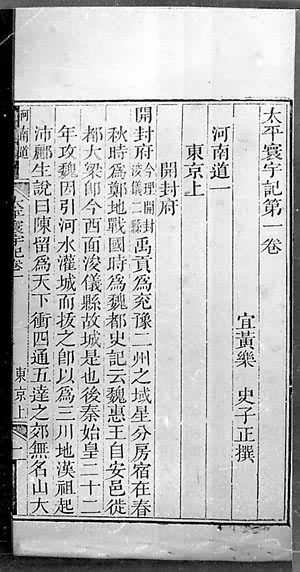 太平寰宇記第一卷
宜黃樂　史子正撰
河南道一
東京上
開封府
開封府今理開封浚儀二縣禹貢爲兗豫二州之域星分房宿在春
秋時爲鄭地戰國時爲魏都史記云魏惠王自安邑徙
都大梁卽今西面浚儀縣故城是也後秦始皇二十二
年攻魏因引河水灌城而拔之卽以爲三川地漢祖起
沛酈生說曰陳留爲天下衝四通五達之郊無名山大
河南道
太平寰宇記卷一
東京上
一